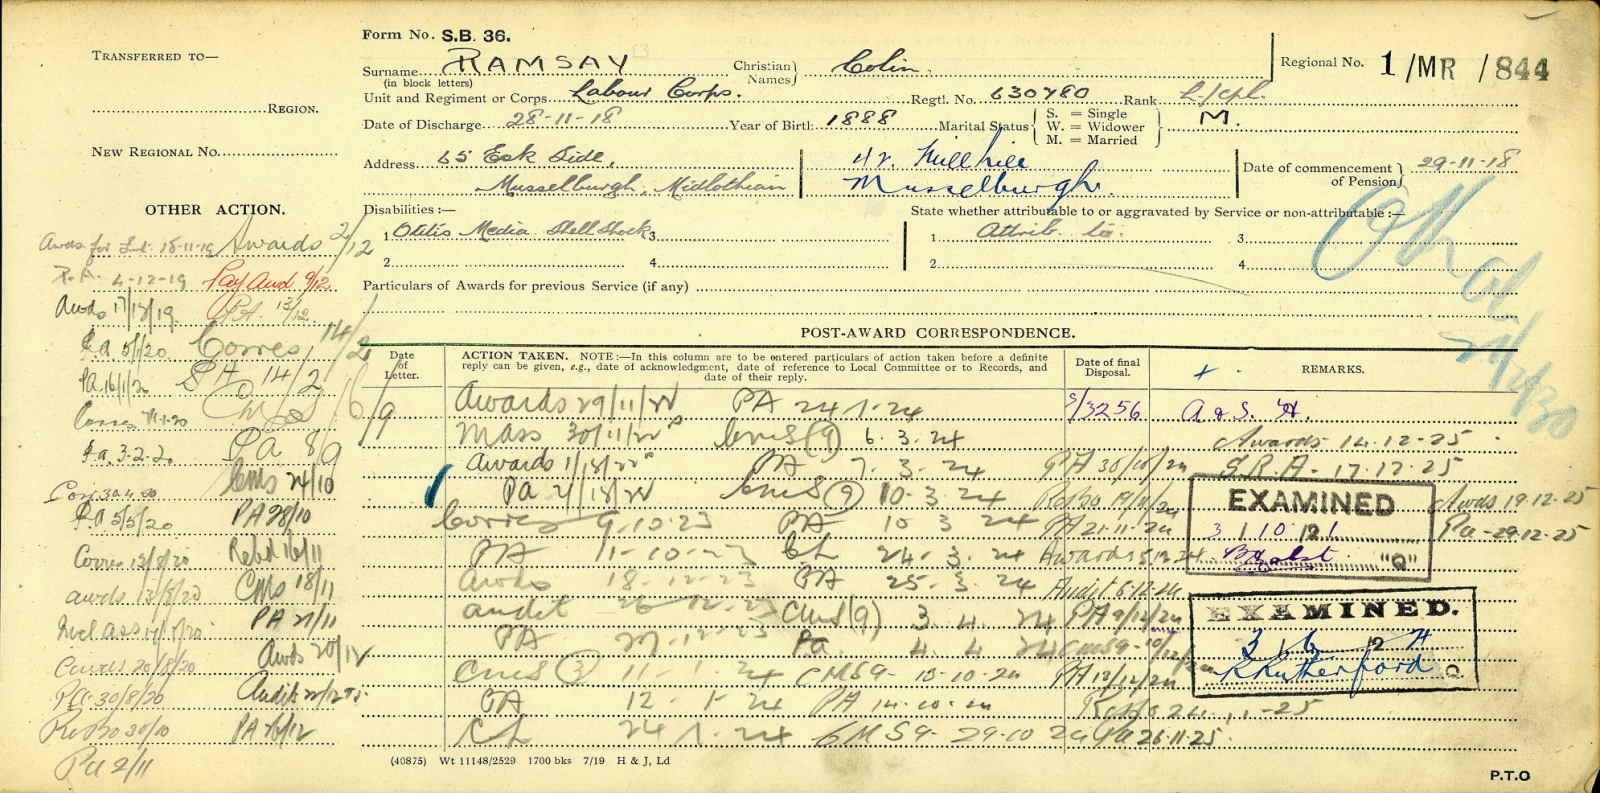 Form No. S.B. 36.
TRANSFERRED TO—
Surname RAMSAY Christian Names} Colin. Regional No. 1/MR/844
(in block letters)
REGION.
Unit and Regiment or Corps Labour Corps. Regtl. No. 630780 Rank L/cpl.
Date of Discharge 28-11-18 Year of Birth 1888 Marital Status { S. = Single W. = Widower M. = Married } M.
NEW REGIONAL No.
Address 65 Esk Side,
Musselburgh, Midlothian
Musselburgh.
Date of commencement of Pension} 29-11-18
OTHER ACTION.
Disabilities :—
State whether attributable to or aggravated by Service or non-attributable :—
1 Otitis Media Shell Shock 3
2 4
1 Attrib to. 3
2 4
Particulars of Awards for previous Service (if any)
18-11-19 Awards 2/12
P.A. 4-12-19 9/12
Awds 17/12/19 P.A. 13/12
P.a 5/1/20 Corres, 14/2
PA. 16/1/20 PA 14/2
Corres
P.a. 3-2-20 Pa 8/9
CMS 24/10
P.a 5/5/20 PA 28/10
Corres 13/8/20 16/11
awds 13/8/20 CMS 18/11
PA 21/11
20/8/20 Awds 20/12
P.a. 30/8/20
30/10 PA 28/12
Pa 2/11
POST-AWARD CORRESPONDENCE.
Date of Letter.
ACTION TAKEN. NOTE :—In this column are to be entered particulars of action taken before a definite
reply can be given, e.g., date of acknowledgment, date of reference to Local Committee or to Records, and
date of their reply.
Date of final Disposal.
REMARKS.
Awards 29/11/22 PA 24.1.24 S/3256 A & S. H.
Mass 30/11/22 CMS (9) 6.3.24 Awards 14.12.25
Awards 1/12/22 PA 7.3.24 PA 30/10/24 S.R.A - 17.12.25
PA 2/12/22 CMS (9) 10.3.24 Awds 19.12.25
Corres 9.10.23 PA 10 3 24 PA 21.11.24 Pa - 29.12.25
PA 11-10-23 CL 24.3.24 Awards 5.12.24
Awds 18-12-23 PA 25.3.24 Audit 6.12.24
audit 26-12-23 CMS (9) 3.4.24 PA 9/12/24
PA 27-12-23 Pa 4.4.24 CMS9
CMS (3) 11-1-24 CMS9 - 10-10-24 PA 12/12/24
PA 12.1.24 PA 14-10-24 24.11.25
CL 24.1.24 CMS9 - 29-10 24 Pa 26.11.25.
EXAMINED
3 10 21
"Q"
EXAMINED.
3 6 24
R Rutherford
Q
(40875) Wt 11148/2529 1700 bks 7/19 H & J, Ld
P.T.O